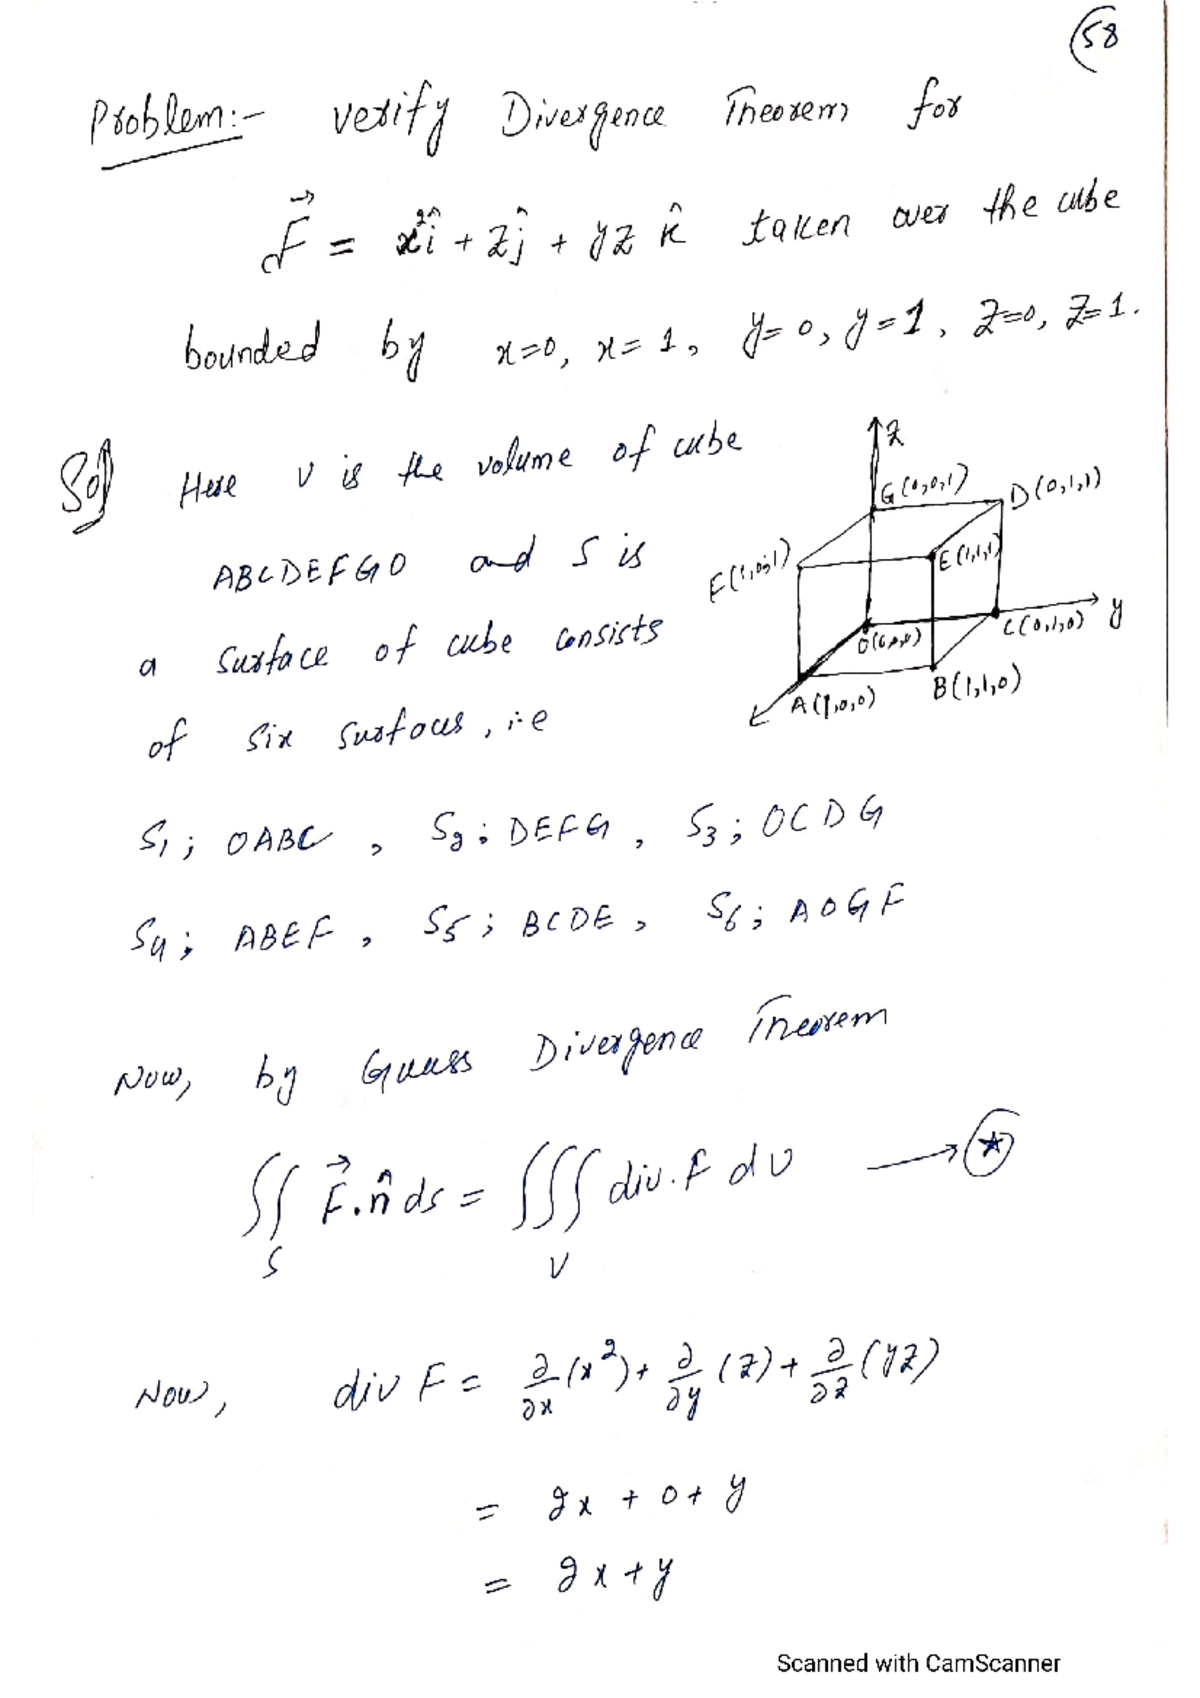 58
Problem:- verify Divergence Theorem for
F⃗ = x²î + zĵ + yz k̂ taken over the cube
bounded by x=0, x=1, y=0, y=1, z=0, z=1.
Sol Here V is the volume of cube
ABCDEFGO and S is
a surface of cube consists
of six surfaces, i.e
z
G(0,0,1)
D(0,1,1)
F(1,0,1)
E(1,1,1)
O(0,0,0)
C(0,1,0) y
A(1,0,0)
B(1,1,0)
S₁; OABC , S₂; DEFG , S₃; OCDG
S₄; ABEF , S₅; BCDE , S₆; AOGF
Now, by Guass Divergence Theorem
∬_S F⃗.n̂ ds = ∭_V div.F dv → ★
Now, div F = ∂/∂x (x²) + ∂/∂y (z) + ∂/∂z (yz)
= 2x + 0 + y
= 2x + y
Scanned with CamScanner